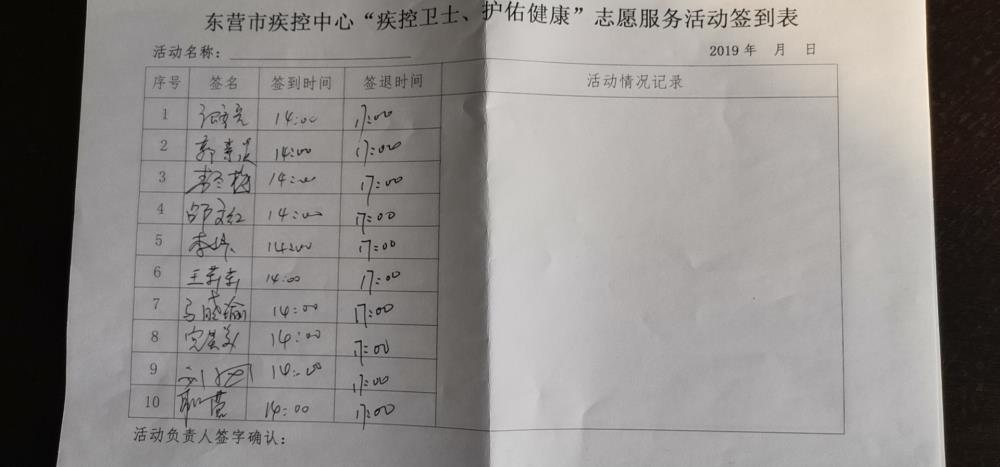 东营市疾控中心“疾控卫士、护佑健康”志愿服务活动签到表
活动名称：
2019 年 月 日
序号 签名 签到时间 签退时间 活动情况记录
1 14:00 17:00
2 14:00 17:00
3 14:00 17:00
4 邵文红 14:00 17:00
5 李 14:00 17:00
6 王莉莉 14:00 17:00
7 马晓瑜 14:00 17:00
8 14:00 17:00
9 刘 14:00 17:00
10 14:00 17:00
活动负责人签字确认：